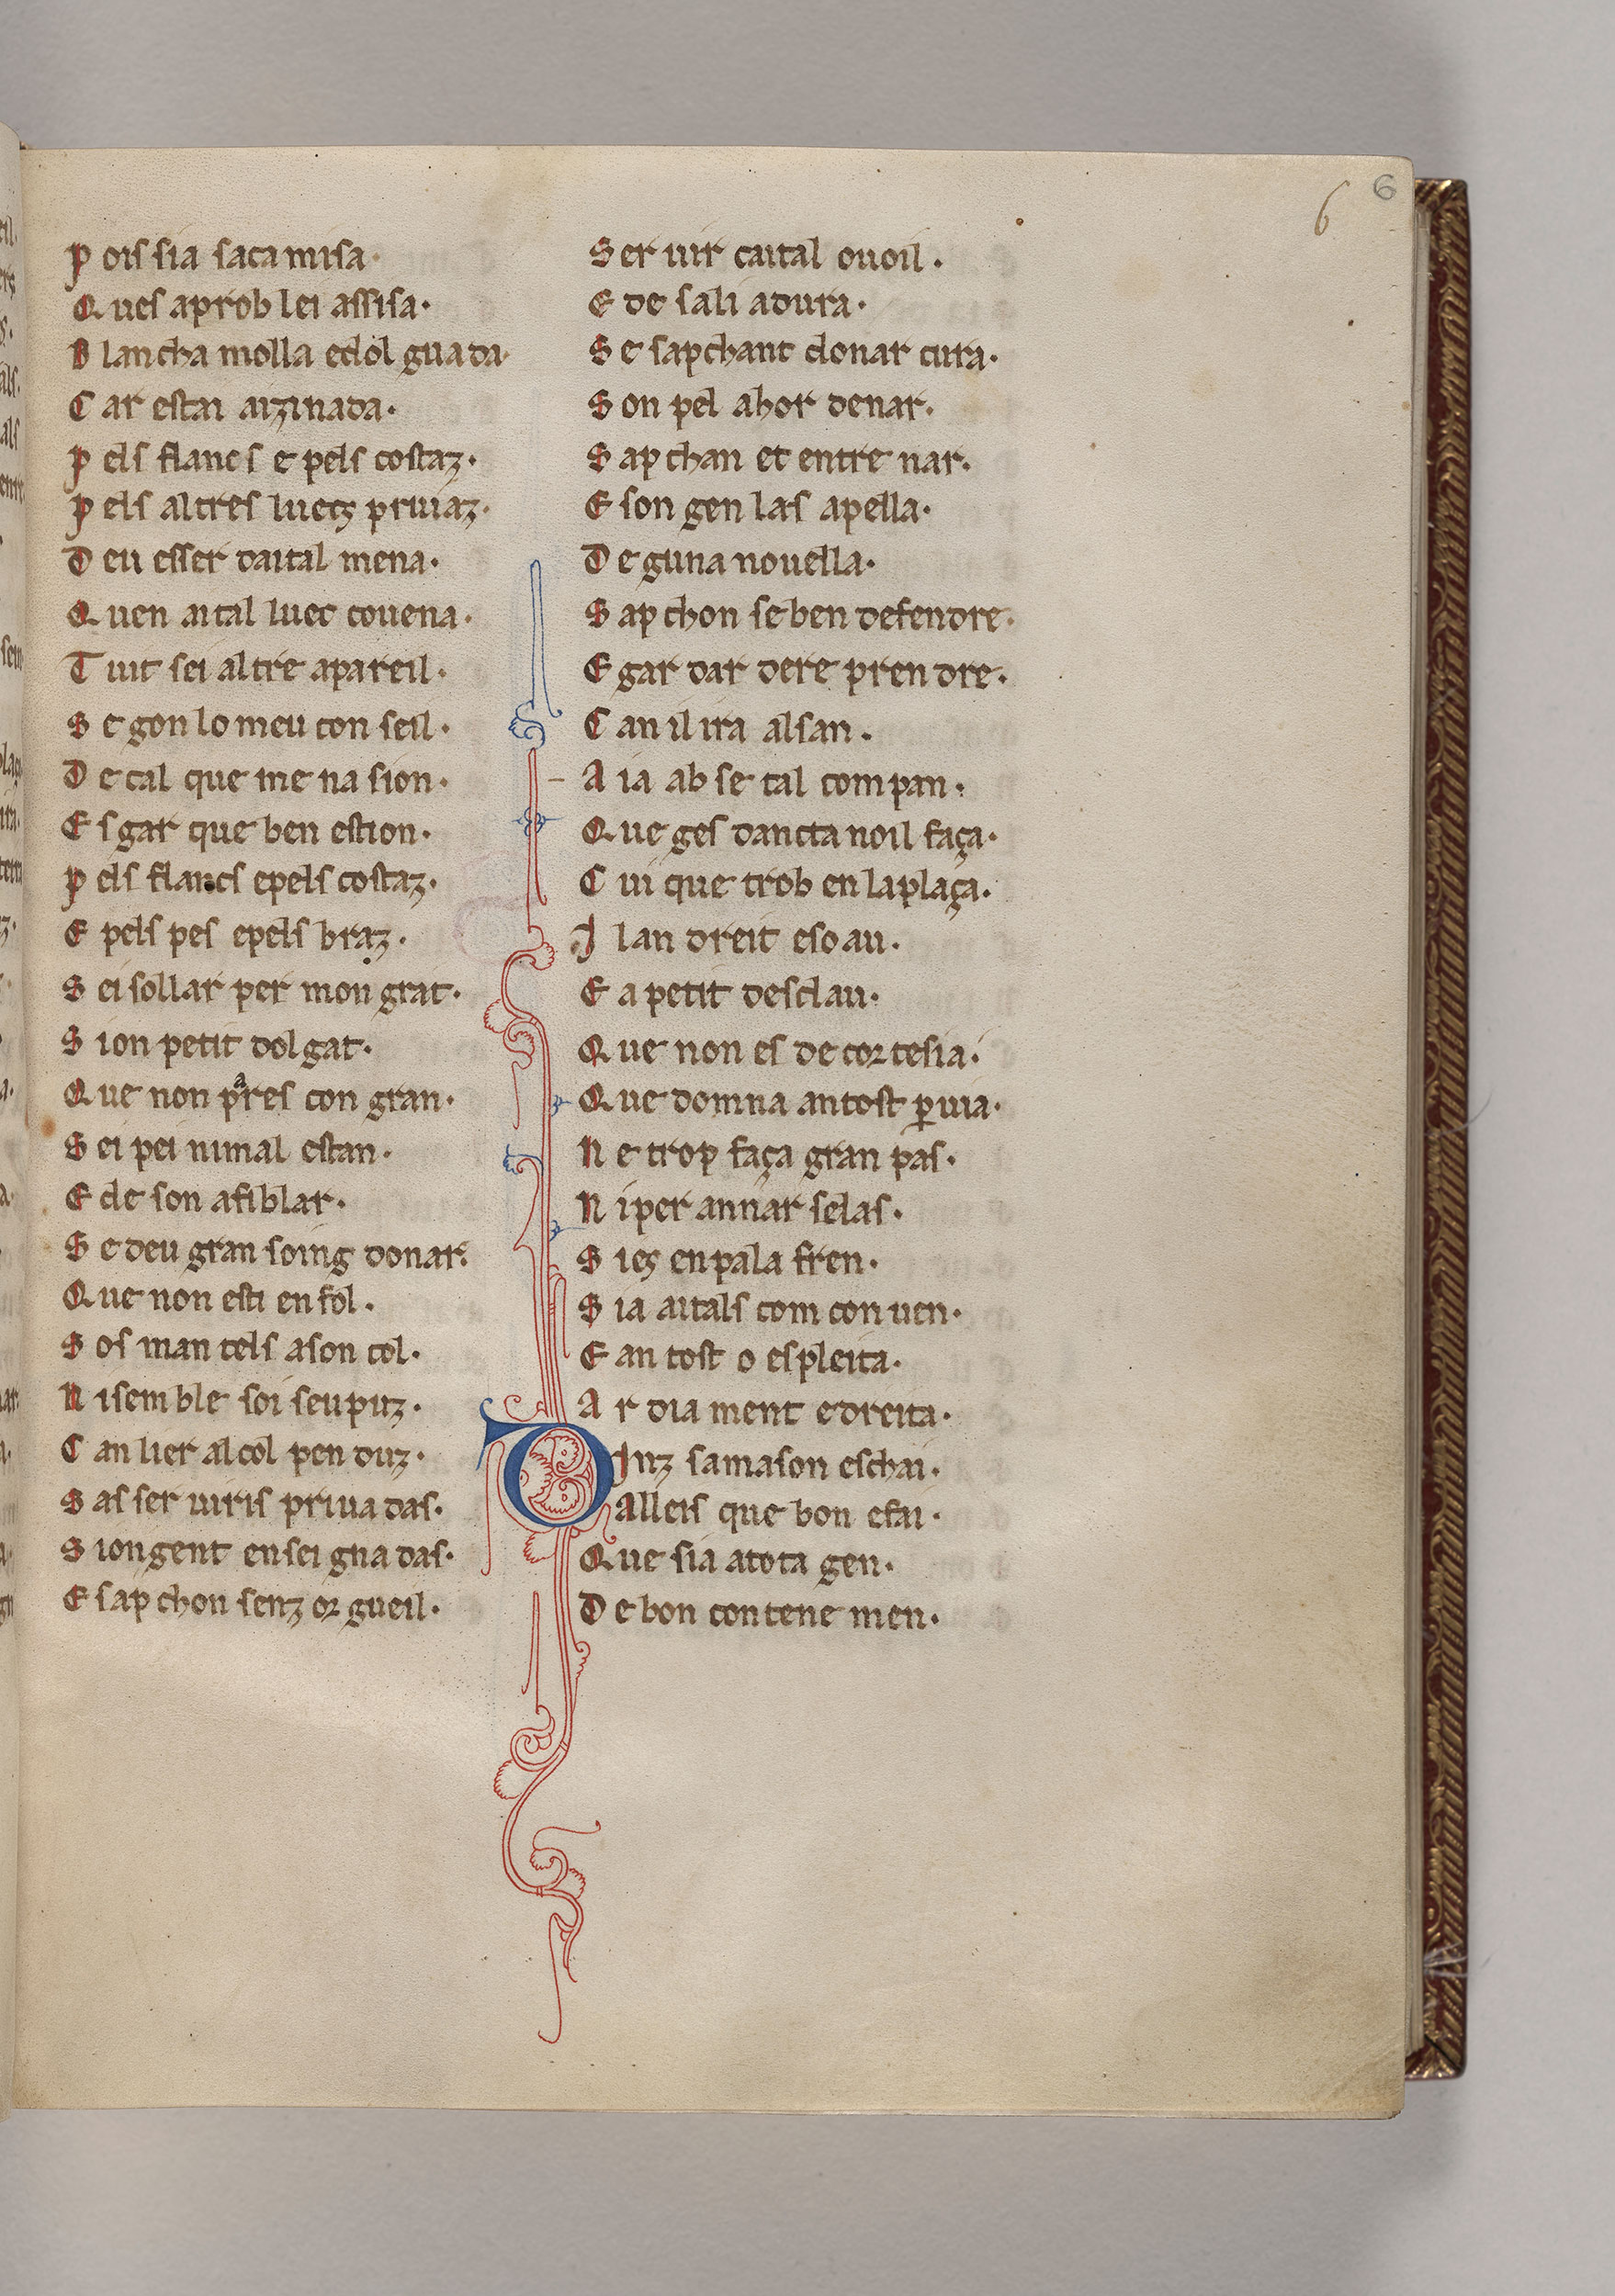 6 6
P ois sia sa camisa·
Q ues aprob lei assisa·
B lancha molla e dol guada·
C ar estai aizinada·
P els flancs e pels costaz·
P els altres luecs priuaz·
D eu esser daital mena·
Q uen aital luec couena·
T uit sei altre apareil·
S egon lo meu conseil·
D e tal que mena sion·
E sgar que ben estion·
P els flancs epels costaz·
E pels pes epels braz·
S ei sollar per mon grat·
S ion petit dolgat·
Q ue non pares con gran·
S ei pei nimal estan·
E de son afiblar·
S e deu gran soing donar·
Q ue non esti en fol·
S os mantels a son col·
N i semble soi seu puz·
C an lier al col penduz·
S as seruiris priuadas·
S ion gent enseignadas·
E sapchon senz orgueil·
S eruir caital ouoil·
E de sali adura·
S e sapchant donar cura·
S on pel ahordenar·
S apchan et entrenar·
E son gen las apella·
D eguna nouella·
S apchon se ben defendre·
E gardar dereprendre·
C an il ira alsan·
A ia ab se tal compan·
Q ue ges dancta noil faça·
C ui que trob en la plaça·
I l an dreit e soau·
E a petit desclau·
Q ue non es de cortesia·
Q ue domna an tost p uia·
N e trop faça gran pas·
N i per annar selas·
S i es en palafren·
S ia aitals com conuen·
E an tost o espleita·
A rdiament e dreita·
D Inz sa mason eschai·
alleis que bon efai·
Q ue sia a tota gen·
D e bon contenemen·